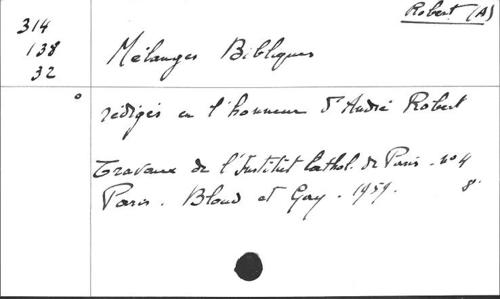 Robert (A)
314
138
32
Mélanges Bibliques
rédigés en l'honneur d'André Robert
Travaux de l'Institut Cathol. de Paris - n° 4
Paris. Bloud et Gay. 1959.
8°